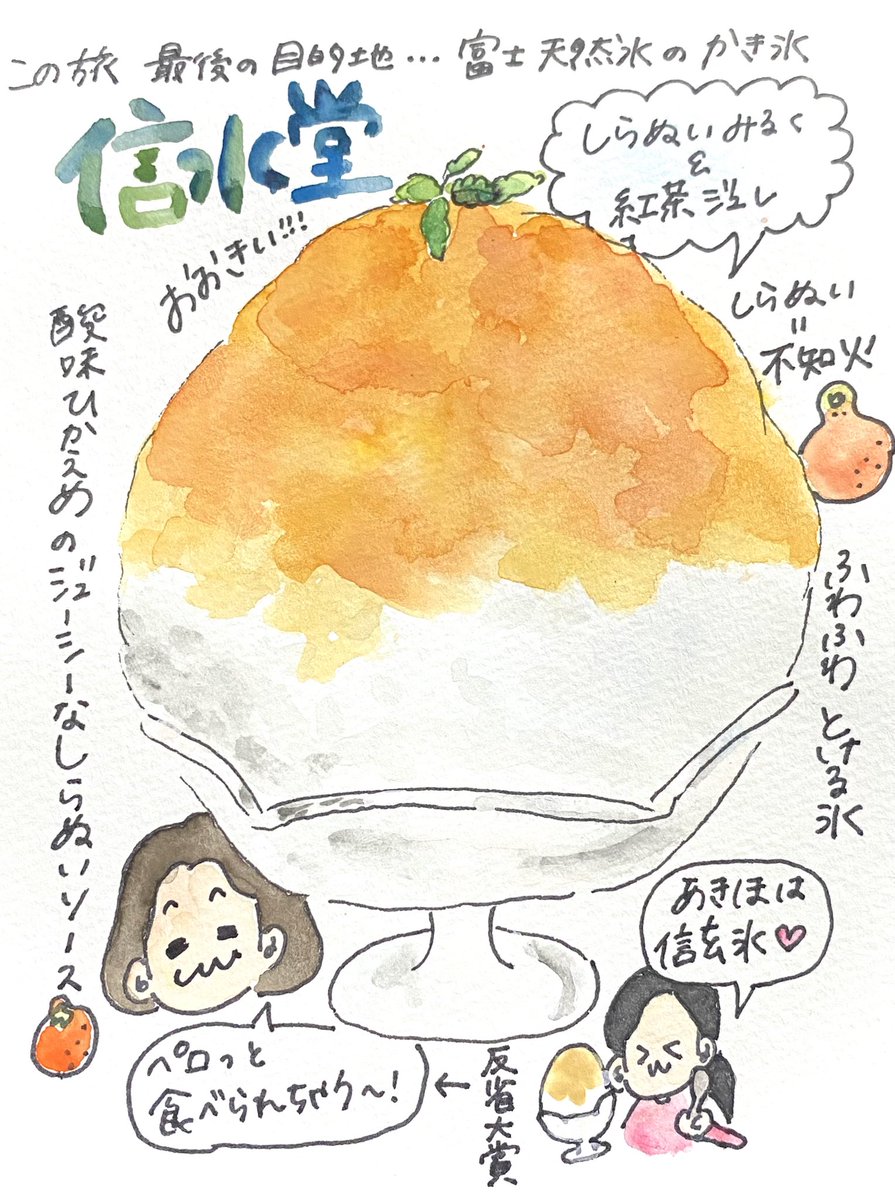 この旅 最後の目的地… 富士 天然氷の かき氷
信水堂
おおきい!!!
しらぬいみるく
&
紅茶ジュレ
しらぬい
=
不知火
酸味ひかえめのジューシーなしらぬいソース
ふわふわ とける氷
あきほは
信玄氷♡
ペロっと
食べられちゃう〜!
←反省大賞